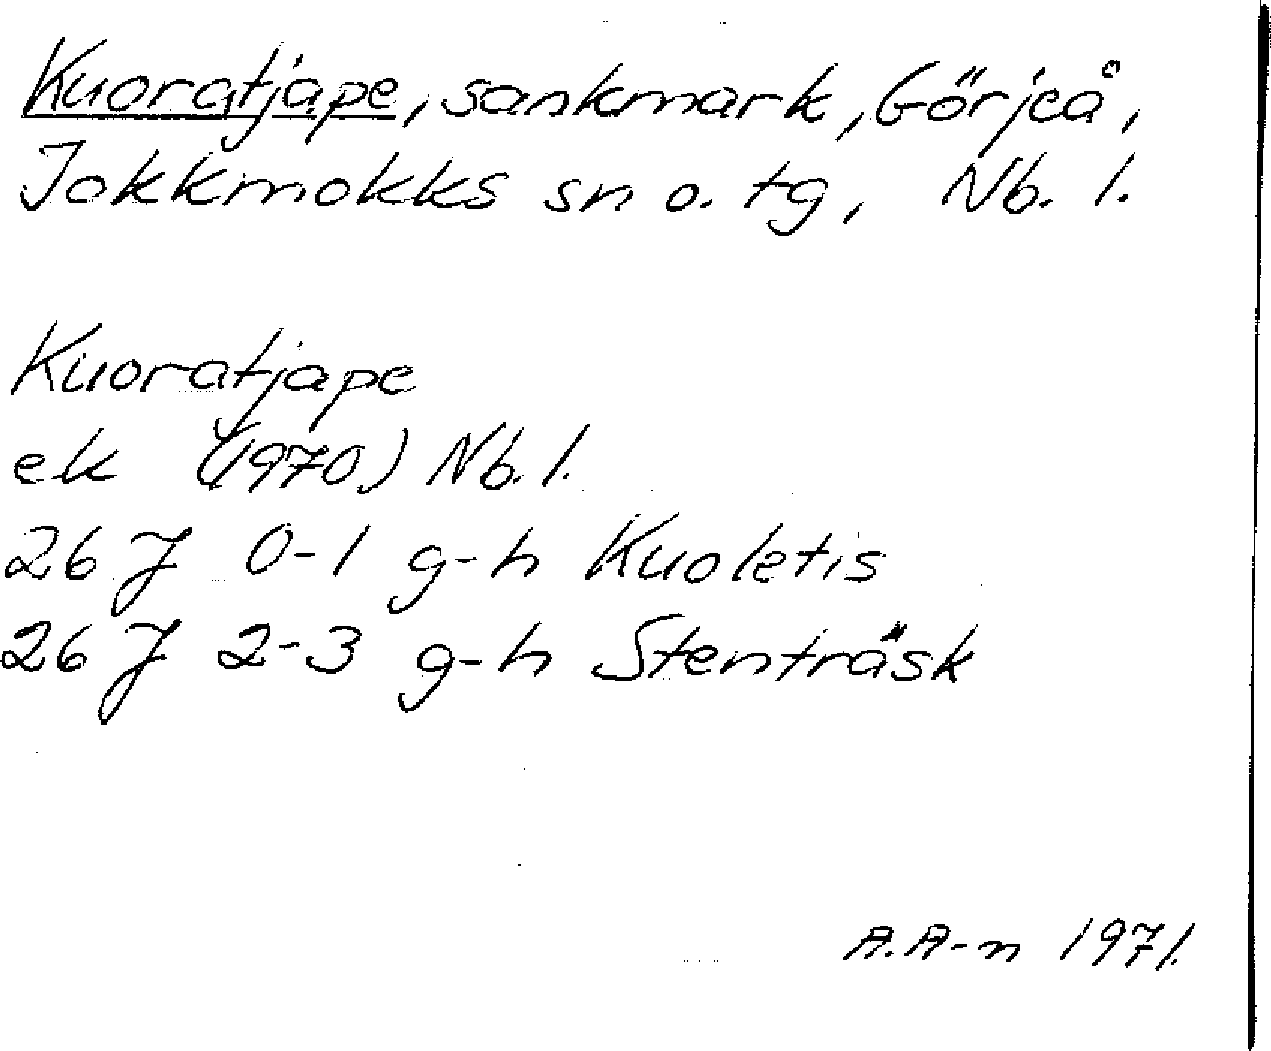 Kuoratjape, sankmark, Görjeå,
Jokkmokks sn o. tg, Nb. l.
Kuoratjape
ek (1970) Nb. l.
26 J 0-1 g-h Kuoletis
26 J 2-3 g-h Stenträsk
A.A-n 1971.